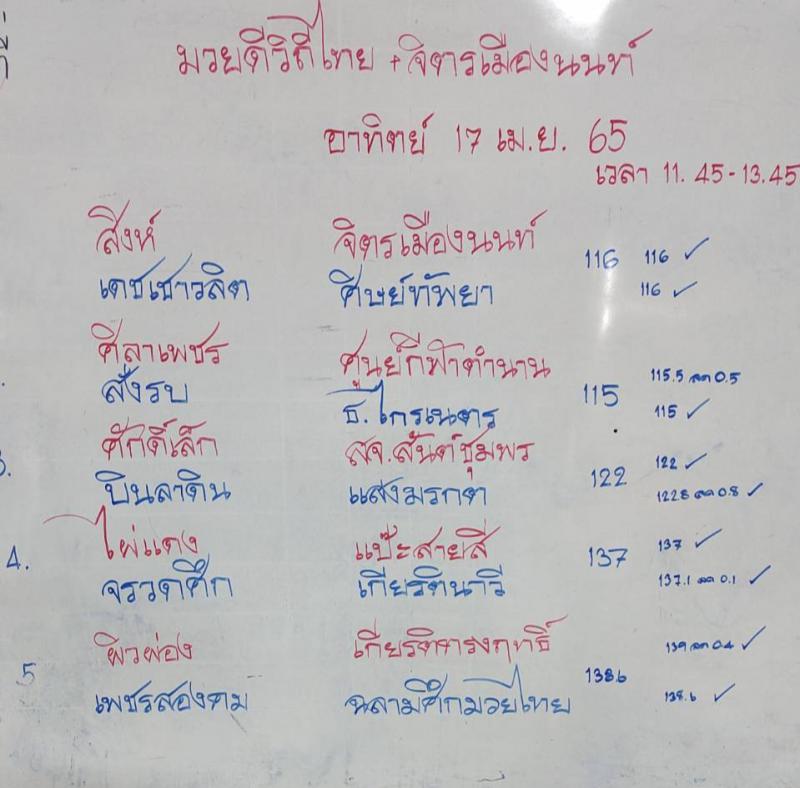 มวยดีวิถีไทย + จิตรเมืองนนท์
อาทิตย์ 17 เม.ย. 65
เวลา 11.45-13.45
สิงห์ จิตรเมืองนนท์ 116 116 ✓
เดชเชาวลิต ศิษย์ทัพยา 116 ✓
ศิลาเพชร ศูนย์กีฬาตำนาน 115.5 ลด 0.5
สั่งรบ ธ.ไกรเนตร 115 115 ✓
ศักดิ์เล็ก สจ.สันต์ชุมพร 122 ✓
บินลาดิน แสงมรกต 122 122.8 ลด 0.8 ✓
ไผ่แดง แป๊ะสายสี่ 137 137 ✓
4. จรวดศึก เกียรตินาวี 137.1 ลด 0.1 ✓
ผิวผ่อง เกียรติทรงฤทธิ์ 139 ลด 0.4 ✓
5 138.6
เพชรสองคม ฉลามศึกมวยไทย 138.6 ✓